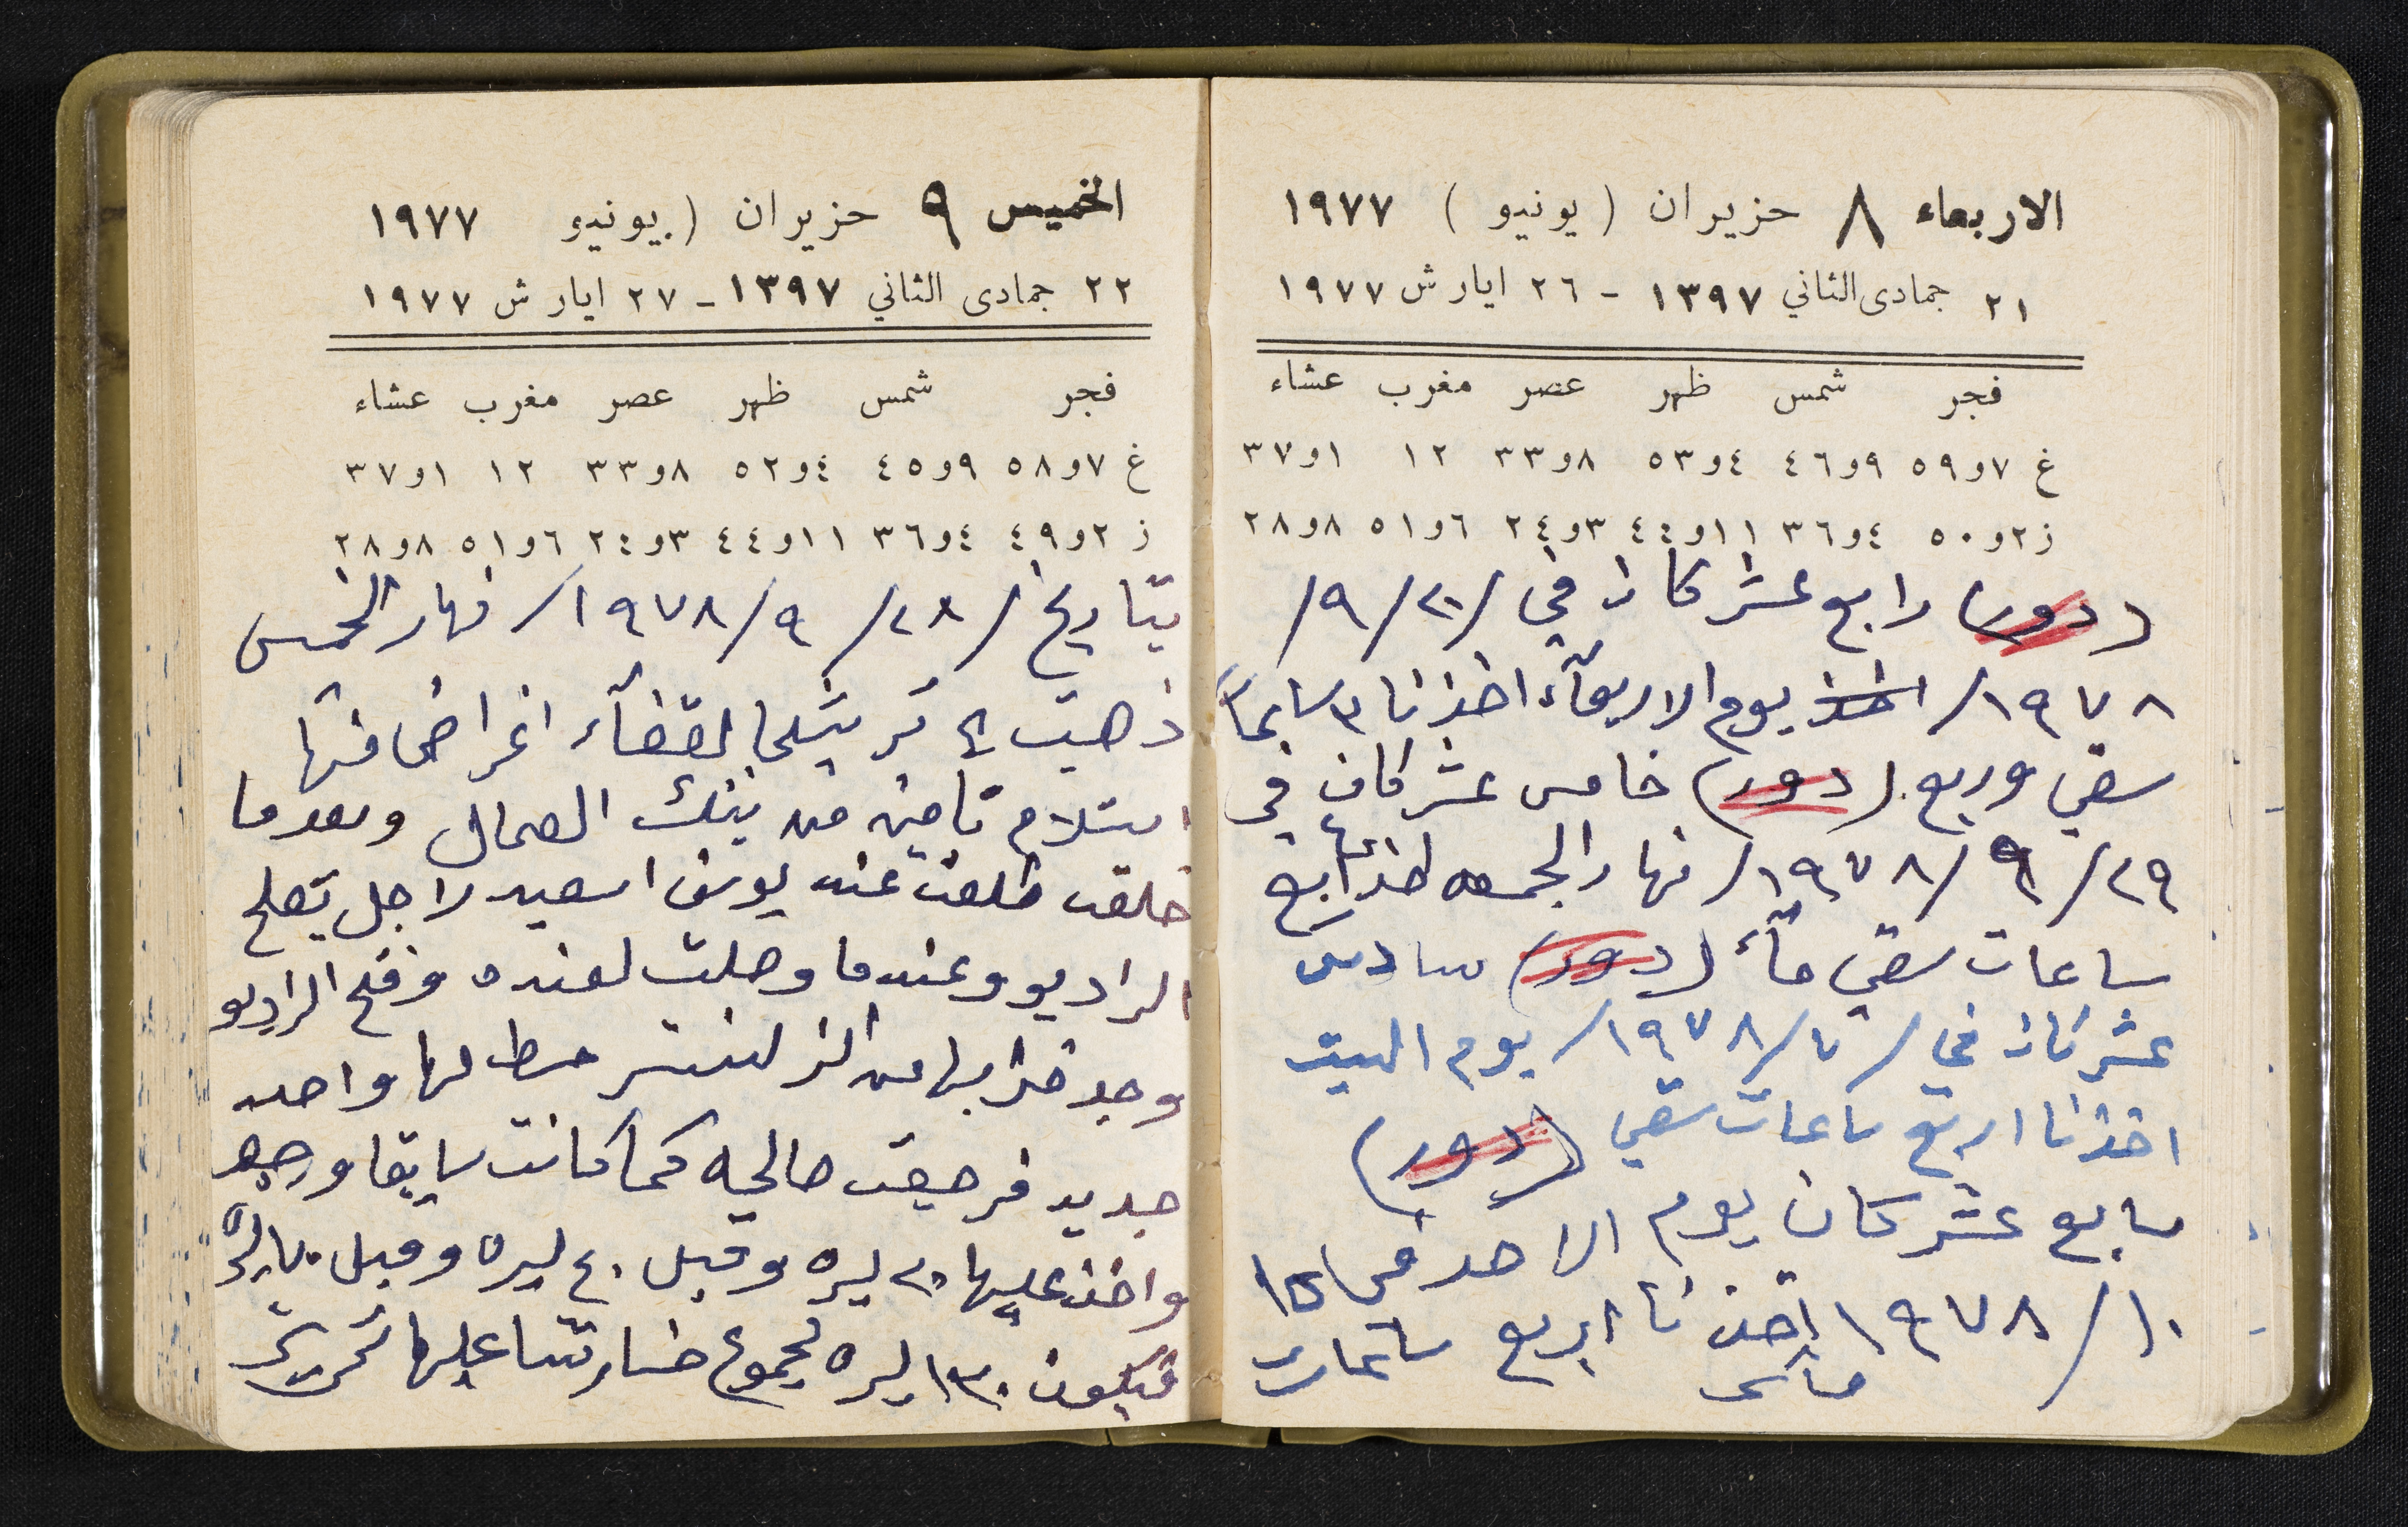 الاربعاء ٨ حزيران ( يونيو ) ١٩٧٧
٢١ جمادى الثاني ١٣٩٧ - ٢٦ ايار ش ١٩٧٧
فجر شمس ظهر عصر مغرب عشاء
غ ٧و٥٩ ٩و٤٦ ٤و٥٣ ٨و٣٣ ١٢ ١و٣٧
ز ٢و٥٠ ٤و٣٦ ١١و٤٤ ٣و٢٤ ٦و٥١ ٨و٢٨
(دور) رابع عشر كان في /٢٠/٩/
١٩٧٨/ اخذ يوم الاربعآء اخذنا ٣ ساعات
سقي وربع (دور) خامس عشر كان في
٢٩/٩/١٩٧٨/ نهار الجمعه اخذنا اربع
ساعات سقي مآء (دور) سادس
عشر كان في /٧/١٩٧٨/ يوم السبت
اخذنا اربع ساعات سقي (دور)
سابع عشر كان يوم الاحد في ١٥/
١٠/١٩٧٨ اخذنا اربع ساعات
مآء
الخميس ٩ حزيران ( يونيو ١٩٧٧
٢٢ جمادى الثاني ١٣٩٧ - ٢٧ ايار ش ١٩٧٧
فجر شمس ظهر عصر مغرب عشاء
غ ٧و٥٨ ٩و٤٥ ٤و٥٢ ٨و٣٣ ١٢ ١و٣٧
ز ٢و٤٩ ٤و٣٦ ١١و٤٤ ٣و٢٤ ٦و٥١ ٨و٢٨
بتاريخ /٢٨/٩/١٩٧٨/ نهار الخميس
ذهبت الى لقضآء اغراض منها
استلام تامين من بنك العمال وبعدما
خلقت طلعت عند يوسف اسعيد لاجل يصلح
الراديو وعندما وصلت لعنده وفتح الراديو
وجد خرابها من الترانستر حط لها واحد
جديد فرجعت صالحه كما كانت سابقا
واخذ عليها ٢٠ ليره وقبل ٤٠ ليره وقبل ٧٠ ليره
فيكون ١٣٠ ليره مجموع خسارتنا عليها